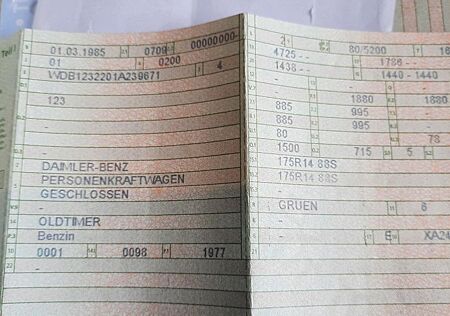 Teil I
01.03.1985 0709 00000000-
01 0200
WDB1232201A239671 4
-
123
-
-
-
DAIMLER-BENZ
PERSONENKRAFTWAGEN
GESCHLOSSEN
-
OLDTIMER
Benzin
0001 0098 1977
-
2 80/5200
4725 -- 1786 --
1438 -- 1440 - 1440
- 1880 1880
885 995
885 995 -
80 - 78
1500 715 5
175R14 88S
175R14 88S
-
GRUEN 6
-
- E XA24